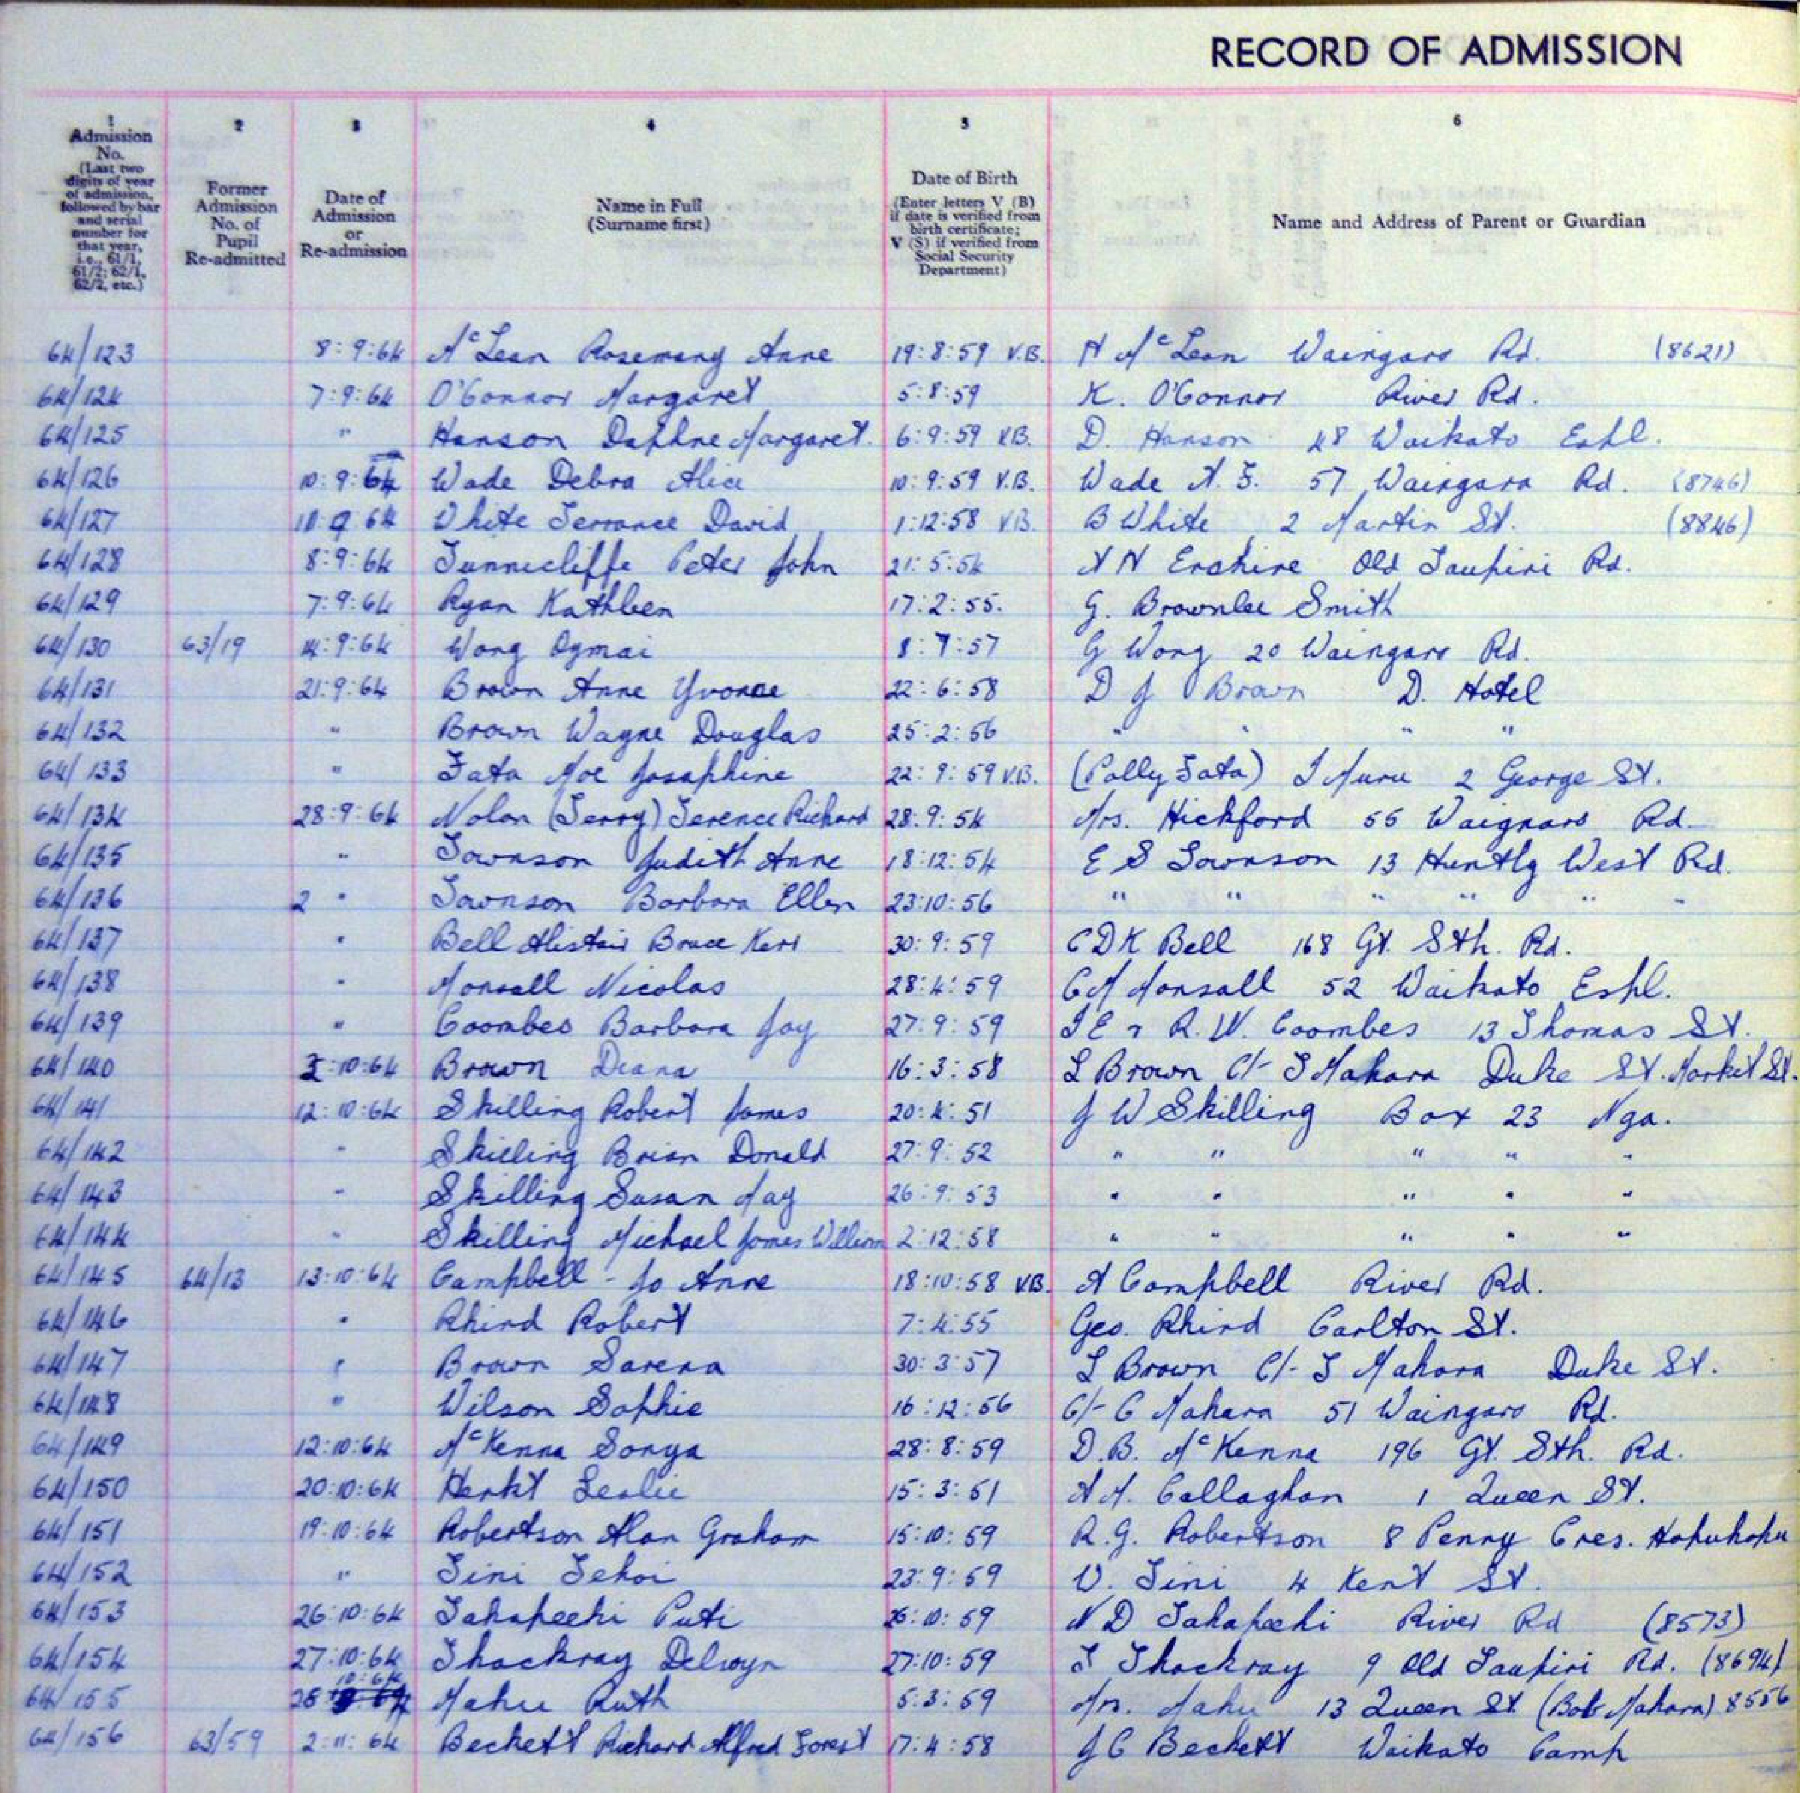 RECORD OF ADMISSION
1 2 3 4 5 6
Admission No. (Last two digits of year of admission, followed by bar and serial number for that year, i.e., 61/1, 61/2; 62/1, 62/2, etc.)
Former Admission No. of Pupil Re-admitted
Date of Admission or Re-admission
Name in Full (Surname first)
Date of Birth (Enter letters V (B) if date is verified from birth certificate; V (S) if verified from Social Security Department)
Name and Address of Parent or Guardian
64/123 8:9:64 McLean Rosemary Anne 19:8:59 V.B. H McLean Waingaro Rd. (8621)
64/124 7:9:64 O'Connor Margaret 5:8:59 K. O'Connor River Rd.
64/125 " Hanson Daphne Margaret. 6:9:59 V.B. D. Hanson 48 Waikato Espl.
64/126 10:9:64 Wade Debra Alice 10:9:59 V.B. Wade 57 Waingaro Rd. (8746)
64/127 9 64 White Terrance David 1:12:58 V.B. B White 2 Martin St. (8846)
64/128 8:9:64 Tunnicliffe Peter John 21:5:54 Erskine Old Taupiri Rd.
64/129 7:9:64 Ryan Kathleen 17:2:55. G. Brownlee Smith
64/130 63/19 14:9:64 Wong Ogmai 8:7:57 G Wong 20 Waingaro Rd.
64/131 21:9:64 Brown Anne Yvonne 22:6:58 D J Brown D. Hotel
64/132 " Brown Wayne Douglas 25:2:56 " " " "
64/133 " Tata Moe Josaphine 22:9:59 V.B. (Polly Tata) Muru 2 George St.
64/134 28:9:64 Nolan (Terry) Terence Richard 28:9:54 Mrs. Hickford 56 Waignaro Rd.
64/135 " Townson Judith Anne 18:12:54 E S Townson 13 Huntly West Rd.
64/136 2 " Townson Barbara Ellen 23:10:56 " " " " " "
64/137 " Bell Alistair Bruce Kerr 30:9:59 C D K Bell 168 Gt. Sth. Rd.
64/138 " Monsall Nicolas 28:4:59 C M Monsall 52 Waikato Espl.
64/139 " Coombes Barbara Joy 27:9:59 R. W. Coombes 13 Thomas St.
64/140 :10:64 Brown Diana 16:3:58 L Brown C/- T Mahara Duke St. Market St.
64/141 12:10:64 Skilling Robert James 20:4:51 J W Skilling Box 23 Nga.
64/142 " Skilling Brian Donald 27:9:52 " " " " "
64/143 " Skilling Susan May 26:9:53 " " " " "
64/144 " Skilling Michael James William 2:12:58 " " " " "
64/145 64/13 13:10:64 Campbell - Jo Anne 18:10:58 V.B. A Campbell River Rd.
64/146 " Rhind Robert 7:4:55 Geo. Rhind Carlton St.
64/147 " Brown Sarena 30:3:57 L Brown C/- T Mahara Duke St.
64/148 " Wilson Sophie 16:12:56 C/- C Mahara 51 Waingaro Rd.
64/149 12:10:64 McKenna Sonya 28:8:59 D. B. McKenna 196 Gt. Sth. Rd.
64/150 20:10:64 Herkt Leslie 15:3:51 Callaghan 1 Queen St.
64/151 19:10:64 Robertson Alan Graham 15:10:59 R. G. Robertson 8 Penny Cres. Hopuhopu
64/152 " Tini Tehoi 23:9:59 W. Tini 4 Kent St.
64/153 26:10:64 Takapeehi Puti 26:10:59 N D Takapeehi River Rd (8573)
64/154 27:10:64 Thackray Delwyn 27:10:59 T Thackray 9 Old Taupiri Rd. (8694)
64/155 28 10:64 Mahu Ruth 5:3:59 Mrs. Mahu 13 Queen St (Bob Mahara) 8556
64/156 63/59 2:11:64 Beckett Richard Alfred Forest 17:4:58 J C Beckett Waikato Camp